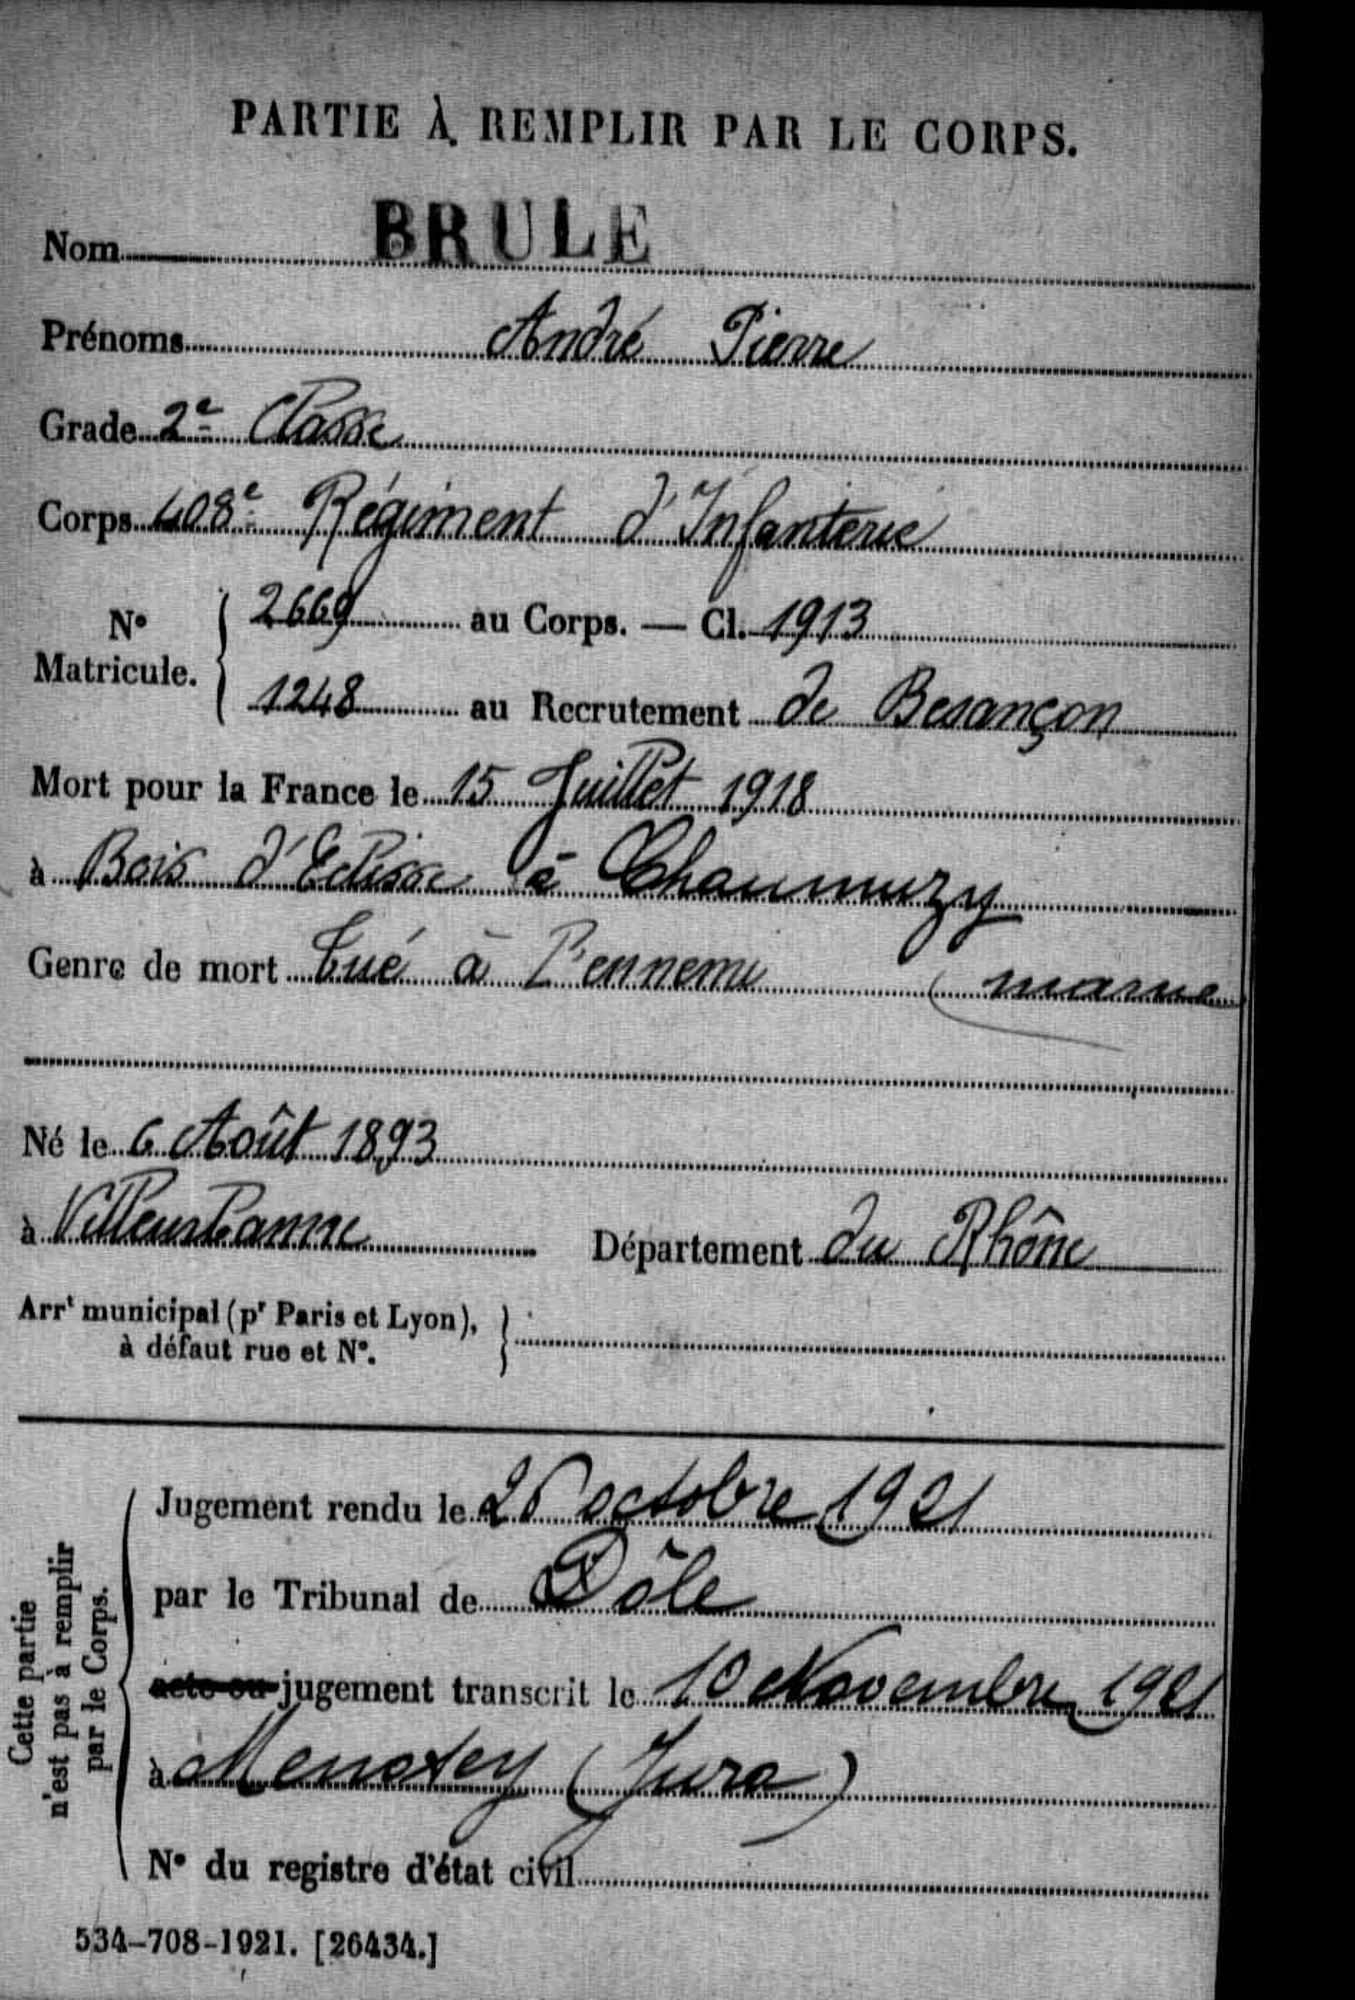 PARTIE À REMPLIR PAR LE CORPS.
Nom BRULE
Prénoms André Pierre
Grade 2e Classe
Corps 408e Régiment d'Infanterie
No Matricule. { 2669 au Corps. — Cl. 1913
1248 au Recrutement de Besançon
Mort pour la France le 15 Juillet 1918
à Bois d'Eclisse à Chaumuzy
Genre de mort Tué à l'ennemi (marne
Né le 6 Août 1893
à Villeurbanne Département du Rhône
Arrt municipal (pr Paris et Lyon), }
à défaut rue et No.
Cette partie
n'est pas à remplir
par le Corps.
Jugement rendu le 26 octobre 1921
par le Tribunal de Dôle
acte ou jugement transcrit le 10 Novembre 1921
à Menotey (Jura)
No du registre d'état civil
534-708-1921. [26434.]